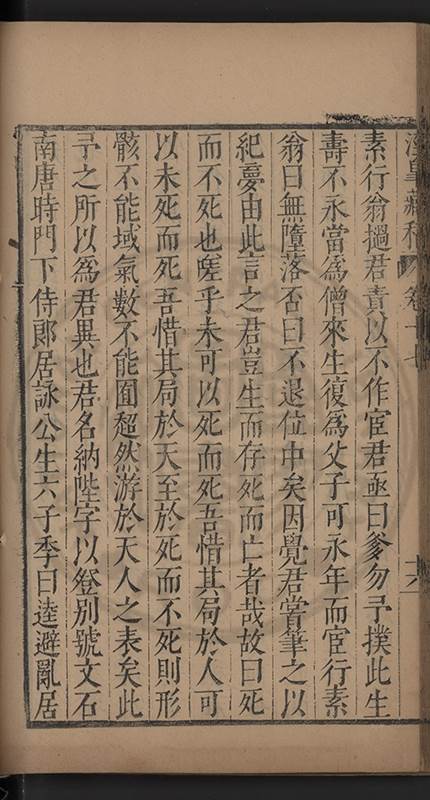 漢皐藏稿 卷十七 十八
素行翁撾君責以不作宦君亟曰爹勿予撲此生
壽不永當爲僧來生復爲父子可永年而宦行素
翁曰無墮落否曰不退位中矣因覺君嘗筆之以
紀夢由此言之君豈生而存死而亡者哉故曰死
而不死也嗟乎未可以死而死吾惜其局於人可
以未死而死吾惜其局於天至於死而不死則形
骸不能域氣數不能囿超然游於天人之表矣此
予之所以爲君異也君名納陛字以登別號文石
南唐時門下侍郞居詠公生六子季曰逵避亂居